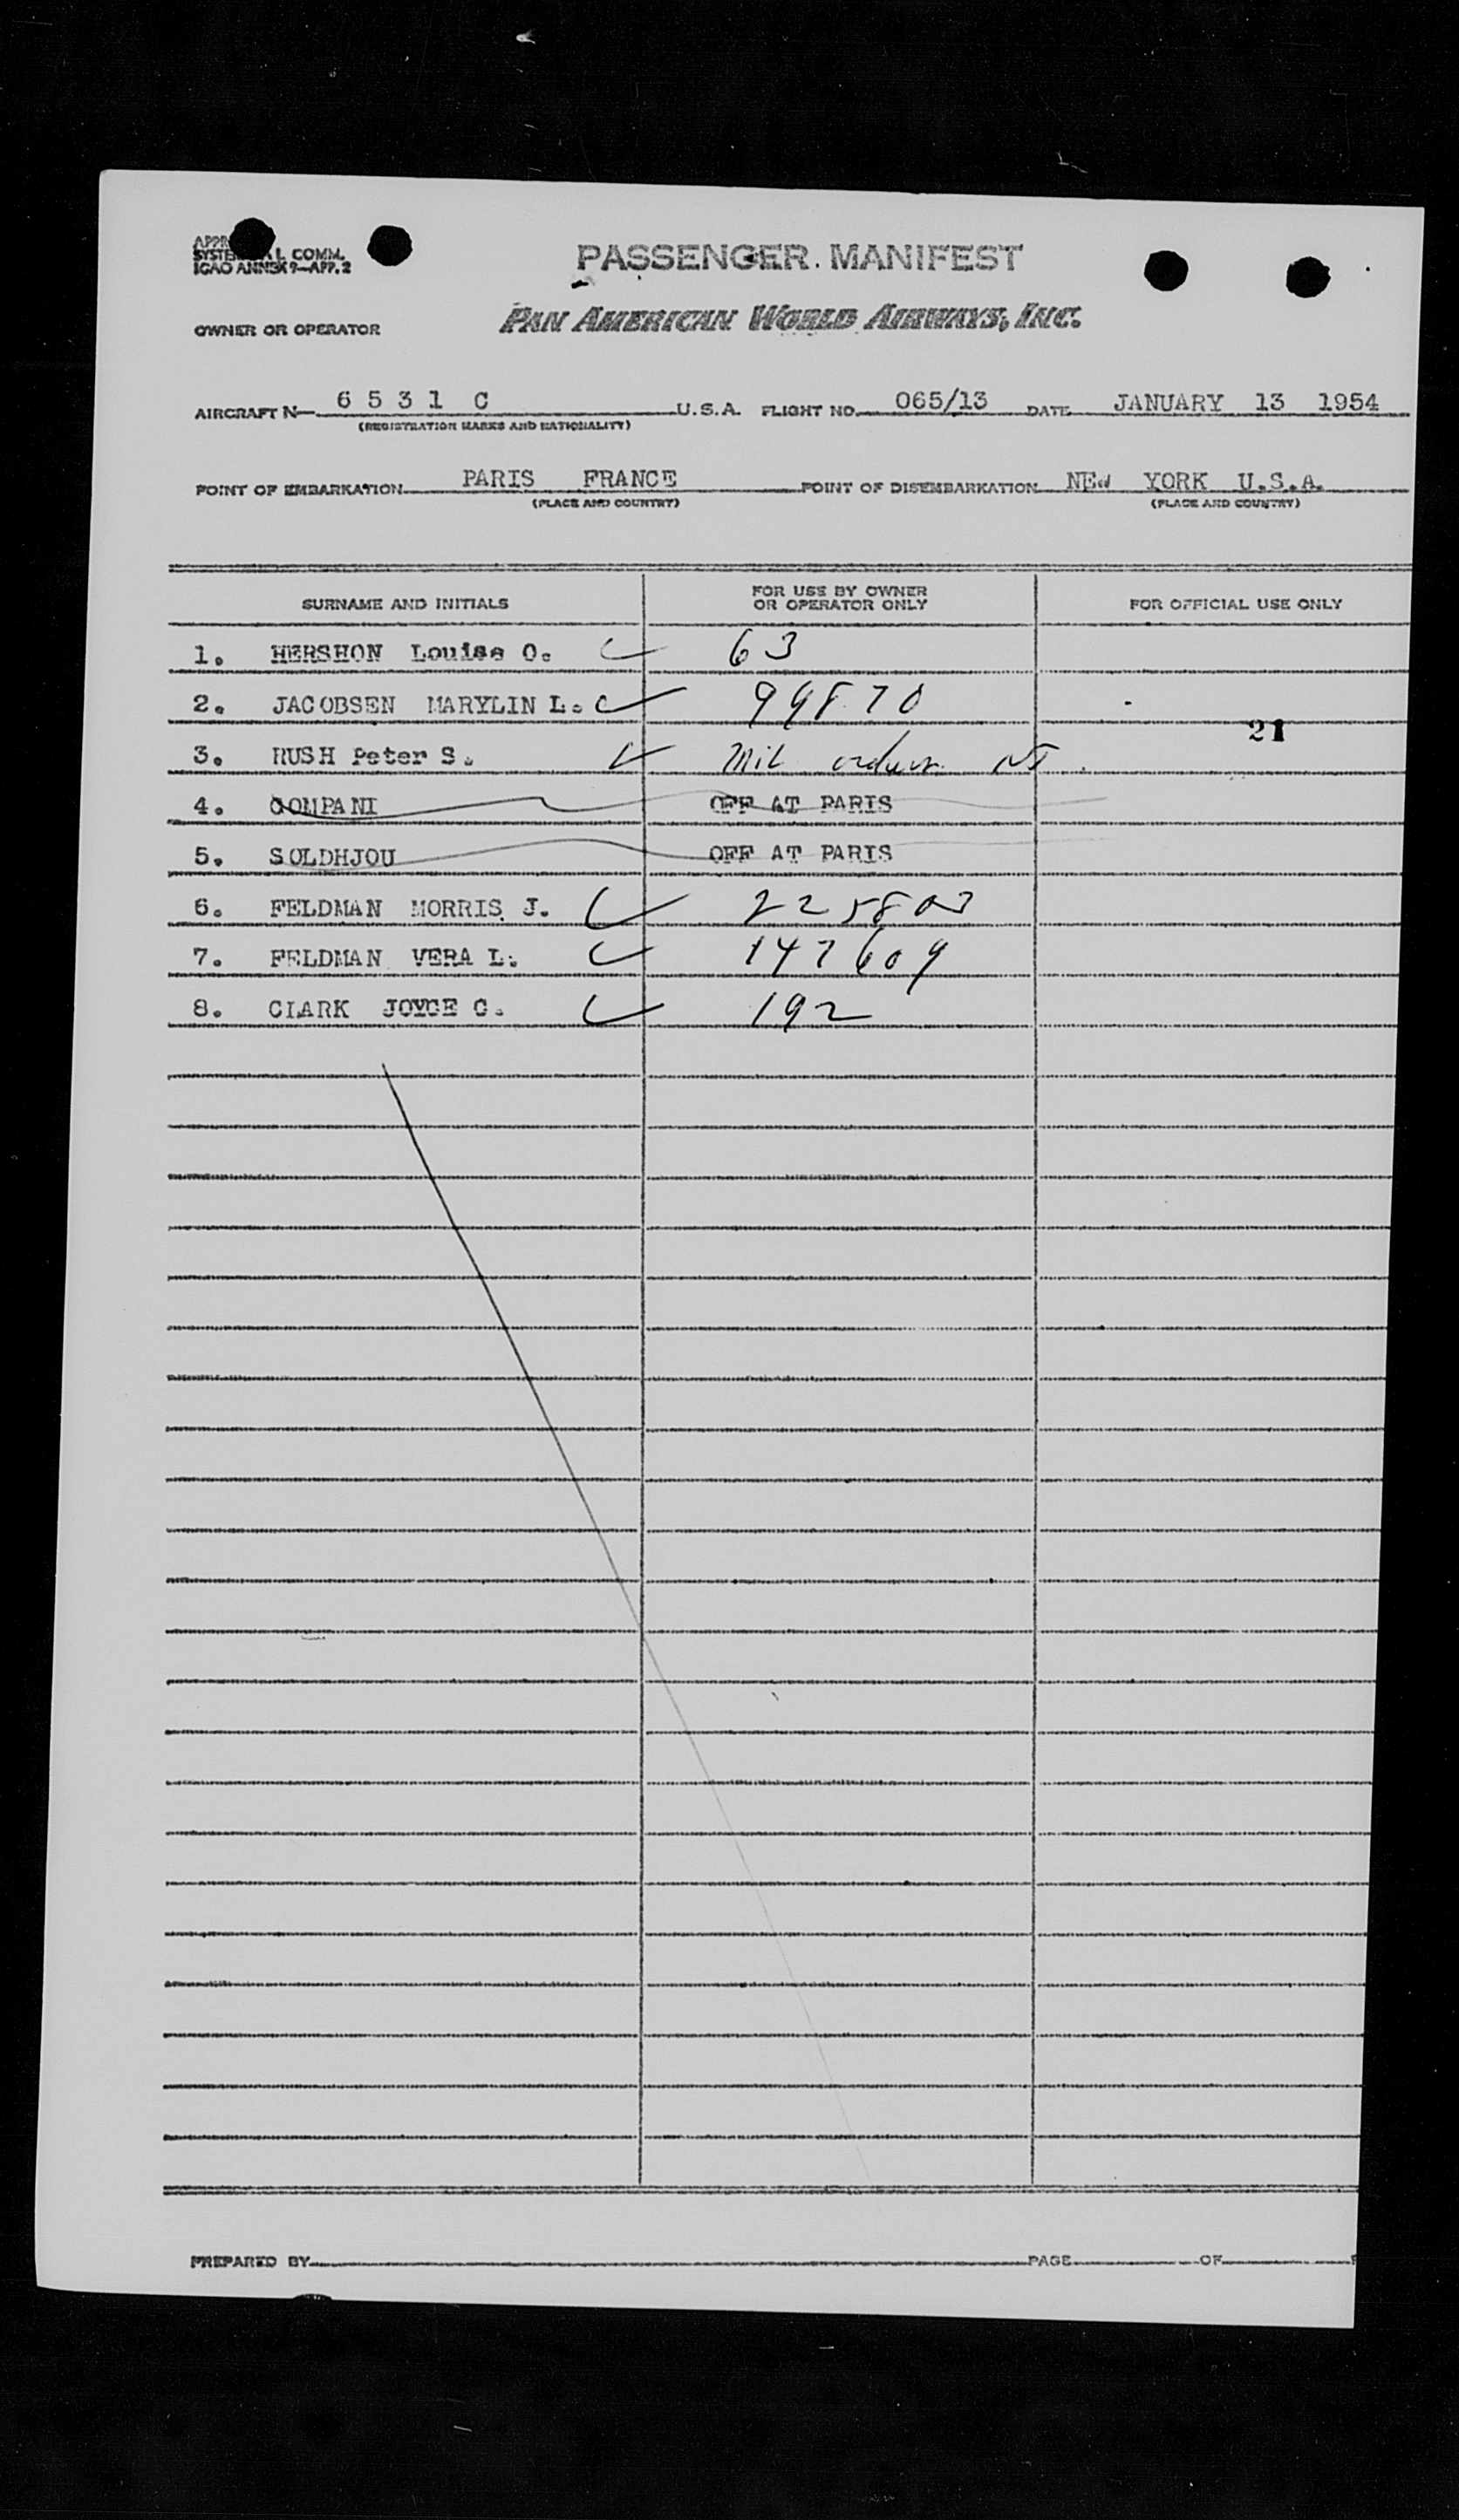 PASSENGER MANIFEST
SYSTE L COMM.
ICAO ANNEX 9—APP. 2
OWNER OR OPERATOR PAN AMERICAN WORLD AIRWAYS, INC.
AIRCRAFT N— 6531 C U.S.A. FLIGHT NO. 065/13 DATE JANUARY 13 1954
(REGISTRATION MARKS AND NATIONALITY)
POINT OF EMBARKATION PARIS FRANCE POINT OF DISEMBARKATION NEW YORK U.S.A.
(PLACE AND COUNTRY) (PLACE AND COUNTRY)
SURNAME AND INITIALS FOR USE BY OWNER OR OPERATOR ONLY FOR OFFICIAL USE ONLY
1. HERSHON Louise O. 63
2. JACOBSEN MARYLIN L. 99870
21
3. RUSH Peter S. Mil orders
4. OFF AT PARIS
5. SOLDHJOU OFF AT PARIS
6. FELDMAN MORRIS J. 225803
7. FELDMAN VERA L. 147609
8. CLARK JOYCE C. 192
PREPARED BY PAGE OF